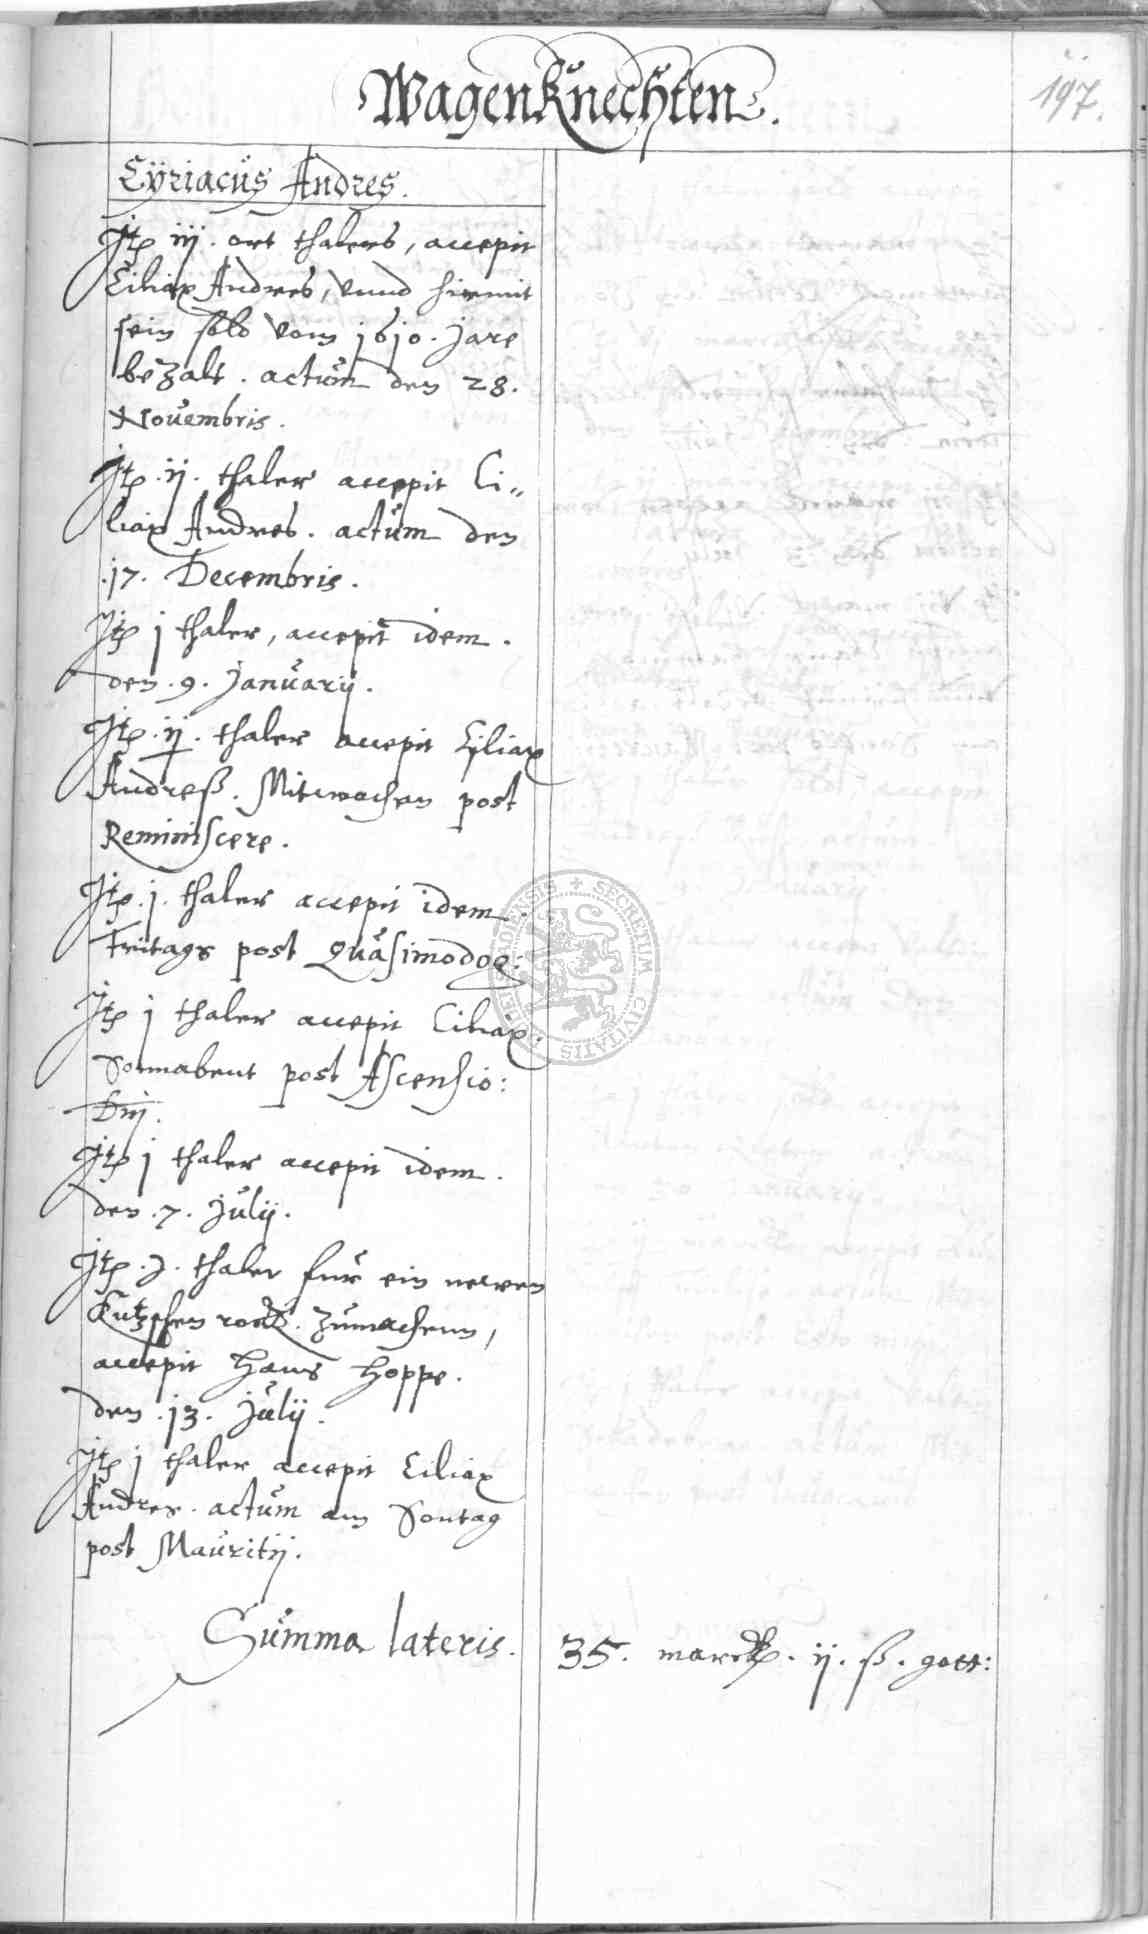 197.
WagenKnechten.
Cÿriacus Andres.
Jtp iij. ort thalers, accepit
Ciliax Andres, vnnd hiemit
sein sold vom 1610. jare
bezalt. actum den 28.
Novembris.
Jtp. ij. thaler accepit Ci„
liax Andres. actum den
.17. Decembris.
Jtp j thaler, accepit idem.
den .9. Januarij.
Jtp. ij. thaler accepit Cÿliax
Andreß. Mitwochen post
Reminiscere.
Jtp. j. thaler accepit idem.
Fritags post Quasimodog:
Jtp j thaler accepit Ciliax.
Sonnabent post Ascensio:
Dnj.
Jtp j thaler accepit idem.
den .7. Julij.
Jtp. j. thaler fur ein newen
Kutzschen rock. zumachenn,
accepit Hans Hoppe.
den .13. Julij.
Jtp j thaler accepit Ciliax
Andres. actum am Sontag
post Mauritij.
Summa lateris. 35. marck. ij. ß. gott:
SECRETUM CIVITATIS